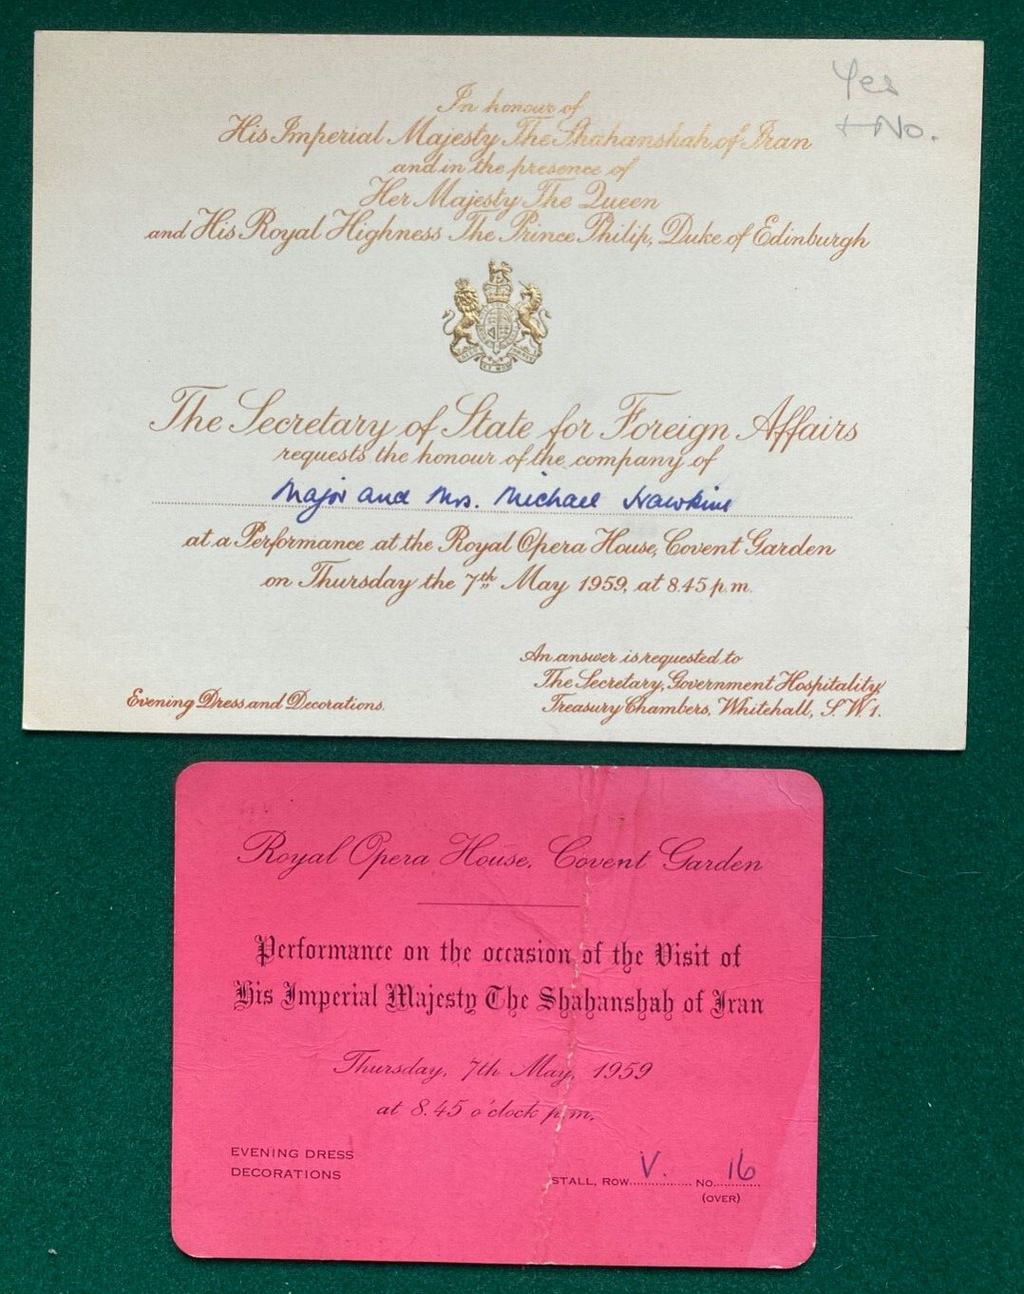 Yes
+ No.
In honour of
His Imperial Majesty The Shahanshah of Iran
and in the presence of
Her Majesty The Queen
and His Royal Highness The Prince Philip, Duke of Edinburgh
The Secretary of State for Foreign Affairs
requests the honour of the company of
Major and Mrs. Michael Hawkins
at a Performance at the Royal Opera House, Covent Garden
on Thursday the 7th May 1959, at 8.45 p.m.
An answer is requested to
The Secretary, Government Hospitality,
Evening Dress and Decorations. Treasury Chambers, Whitehall, S.W.1.
Royal Opera House, Covent Garden
Performance on the occasion of the Visit of
His Imperial Majesty The Shahanshah of Iran
Thursday, 7th May, 1959
at 8.45 o'clock p.m.
EVENING DRESS
DECORATIONS
STALL, ROW V. NO. 16
(OVER)